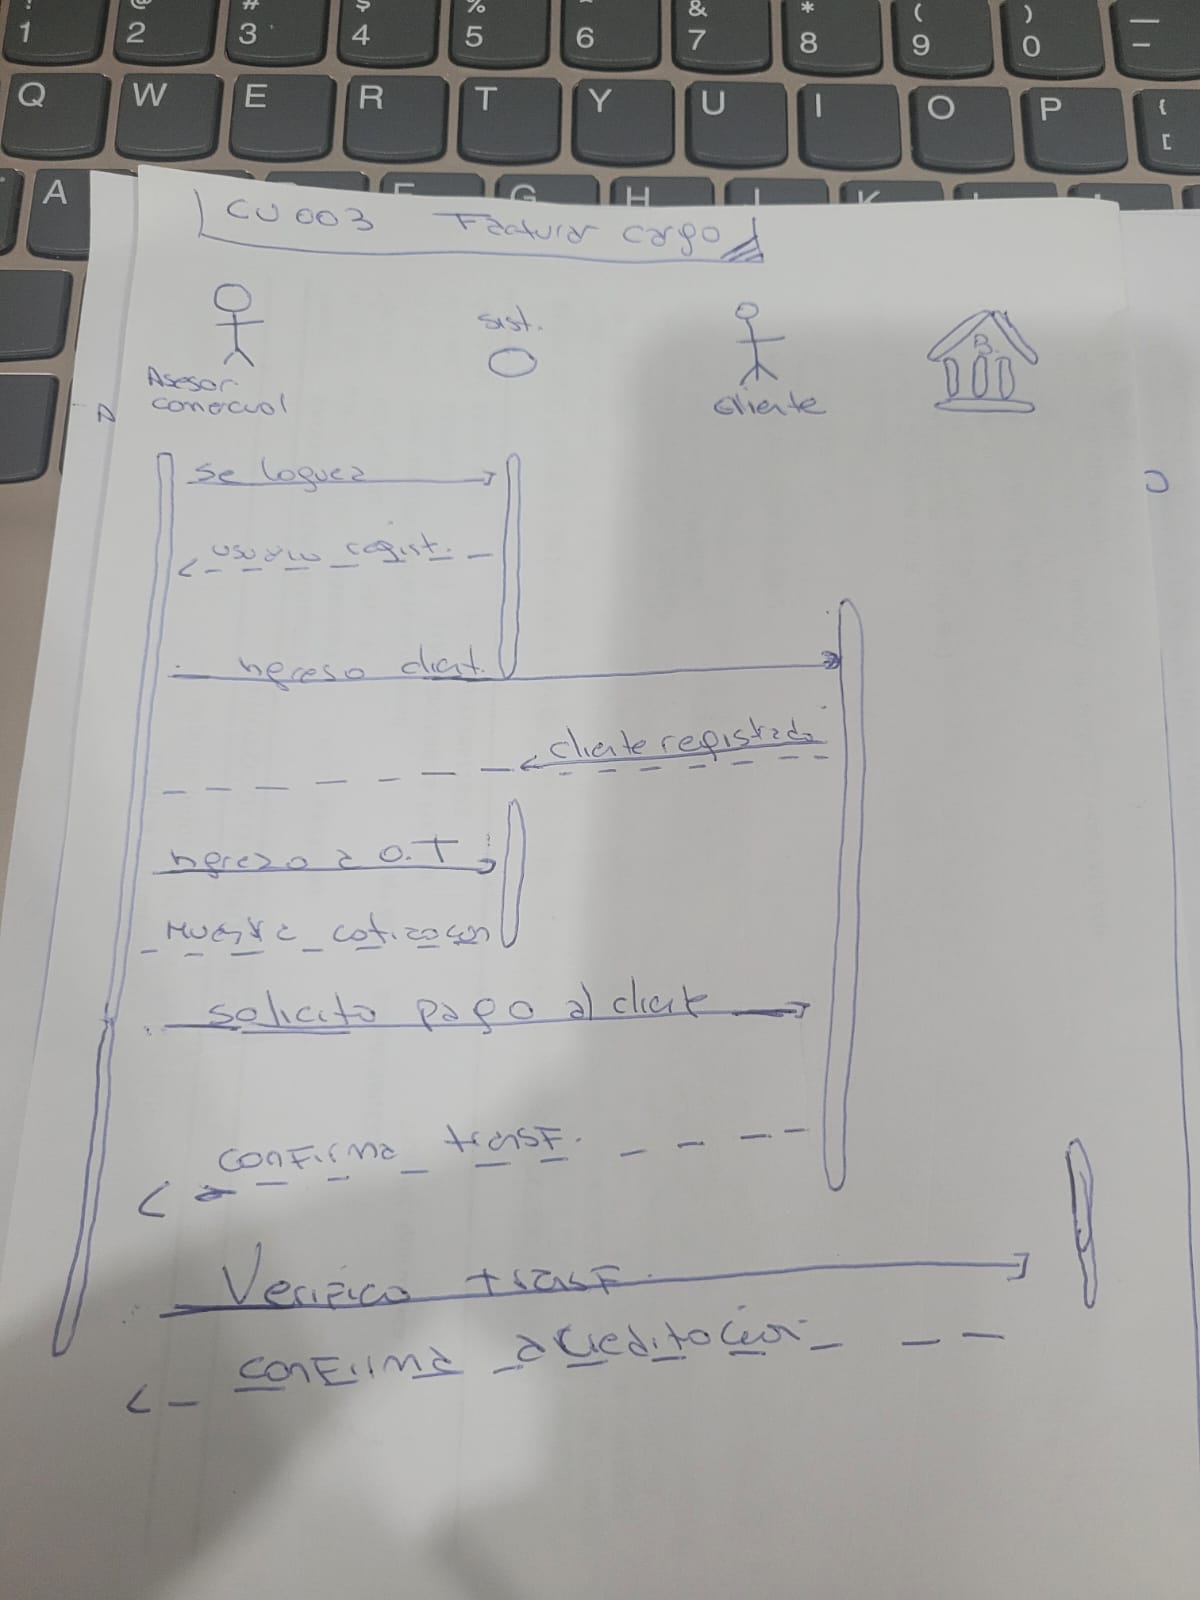 ! @ # $ % ^ & * ( ) —
1 2 3 4 5 6 7 8 9 0 -
Q W E R T Y U I O P { [
A F G H J K L
CU 003 Facturar cargo
sist.
B.
Asesor
comercial
cliente
se loguea
usuario regist.
ingreso client.
cliente registrado
ingreso a O.T
muestra cotizacion
solicito pago al cliente
confirma transf.
Verifico transf.
confirma acreditacion